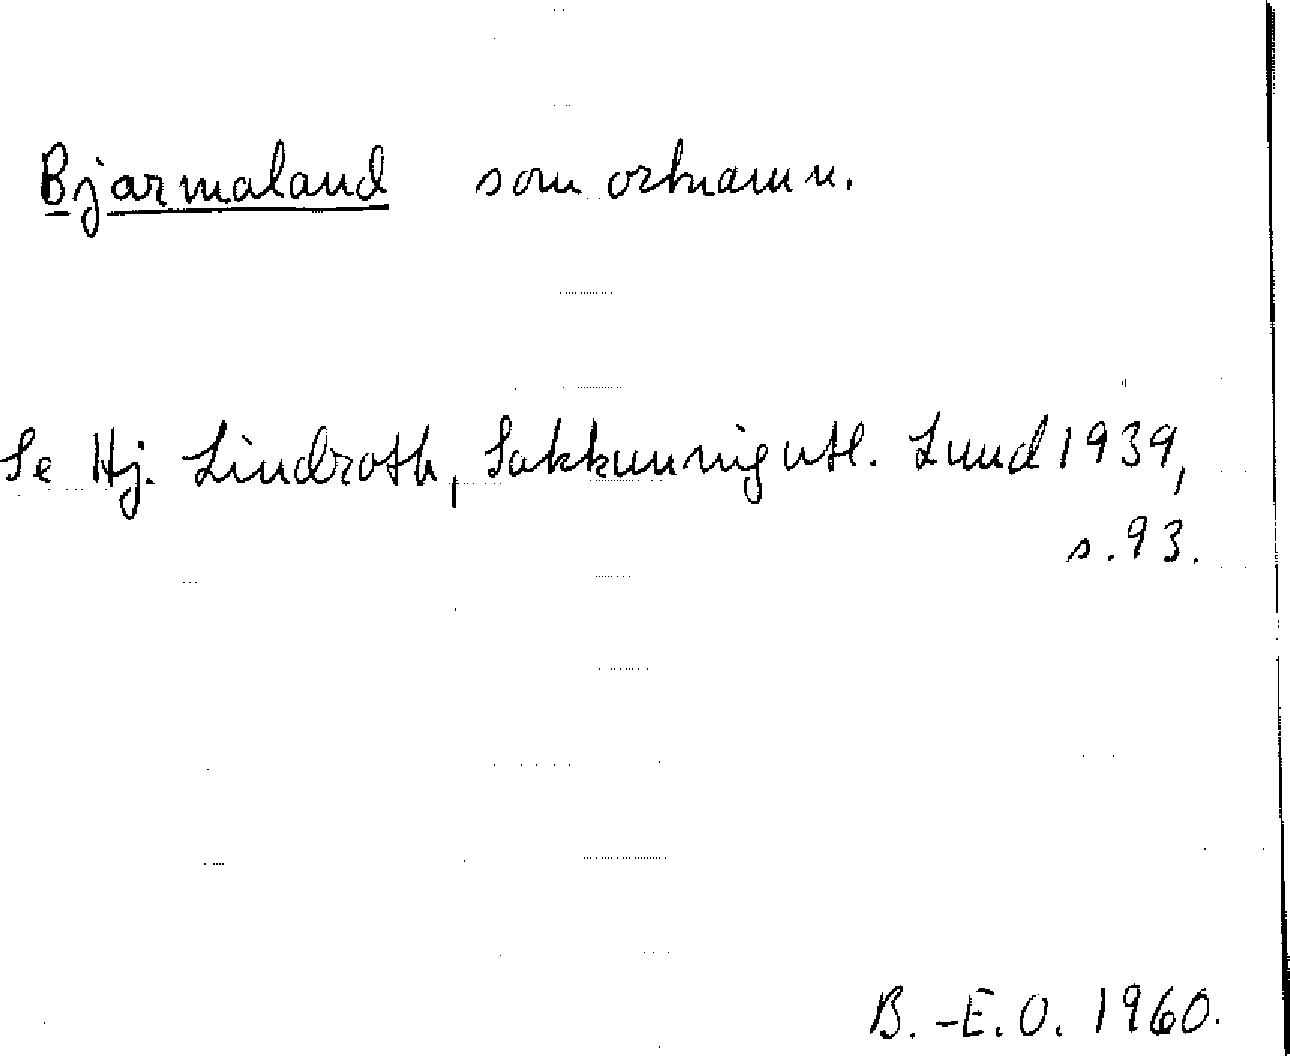 Bjarmaland som ortnamn.
Se Hj. Lindroth, Sakkunnigutl. Lund 1939,
s. 93.
B.-E.O. 1960.